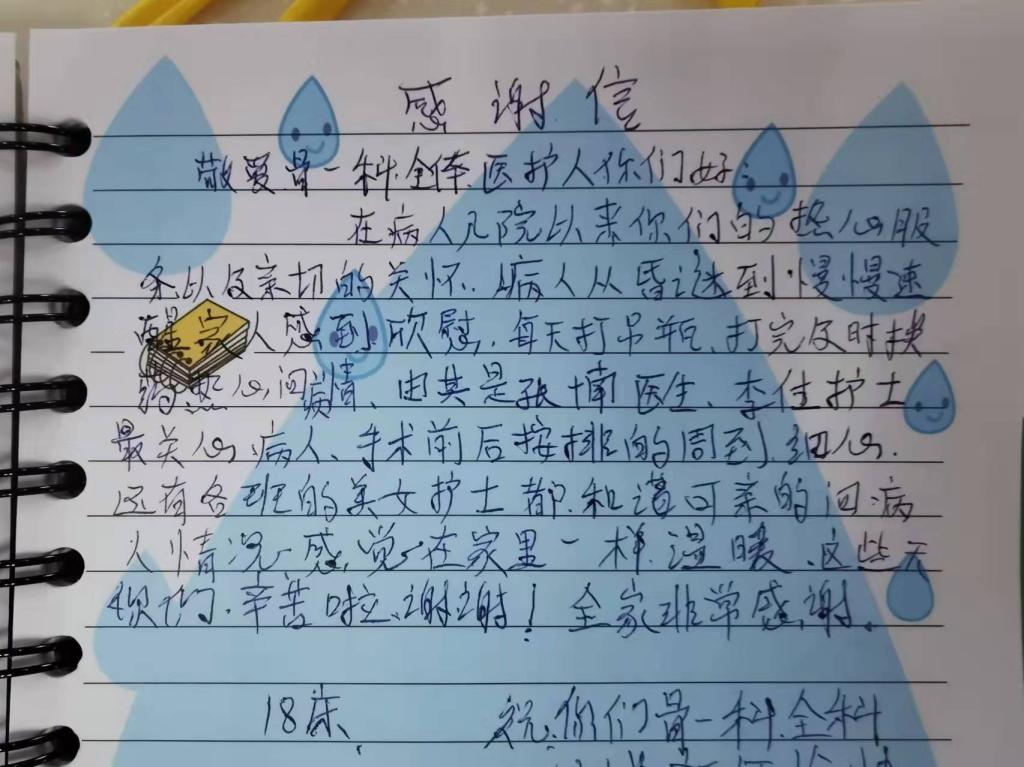 感谢信
敬爱骨一科.全体.医护人你们好:
在病人入院以来你们的热心服
务以及亲切的关怀.病人从昏迷到慢慢速
醒家人感到欣慰.每天打吊瓶、打完及时换
药热心问病情、由其是张楠医生、李佳护士
最关心病人、手术前后按排的周到.细心.
还有各班的美女护士都.和谐可亲的问病
人情况感觉在家里一样.温暖、这些天
你们.辛苦啦、谢谢! 全家非常感谢.
18床 祝.你们骨一科.全科